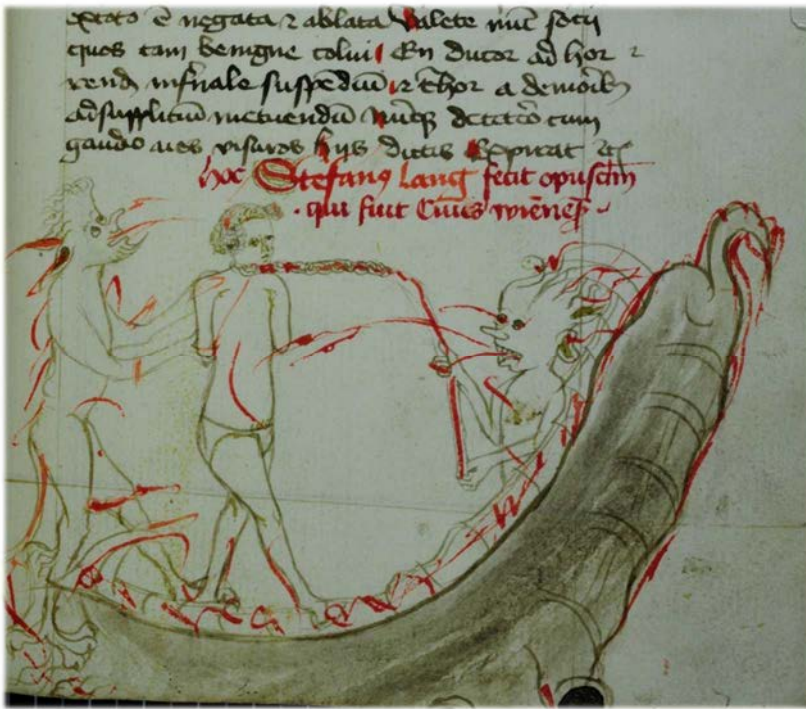 extoto ē negata ⁊ ablata Valete nūc socii
quos tam benigne colui En ducor ad hor
rend infernale suspēdiū ⁊ t̄hor a demoīb
ad supplitiū metuendū nūqꝫ detet̄o cum
gaudio vos visurus hys dictis Expirat
hoc Stefanꝰ lang fecit opusclm
qui fuit Ciuis wiēneꝫ